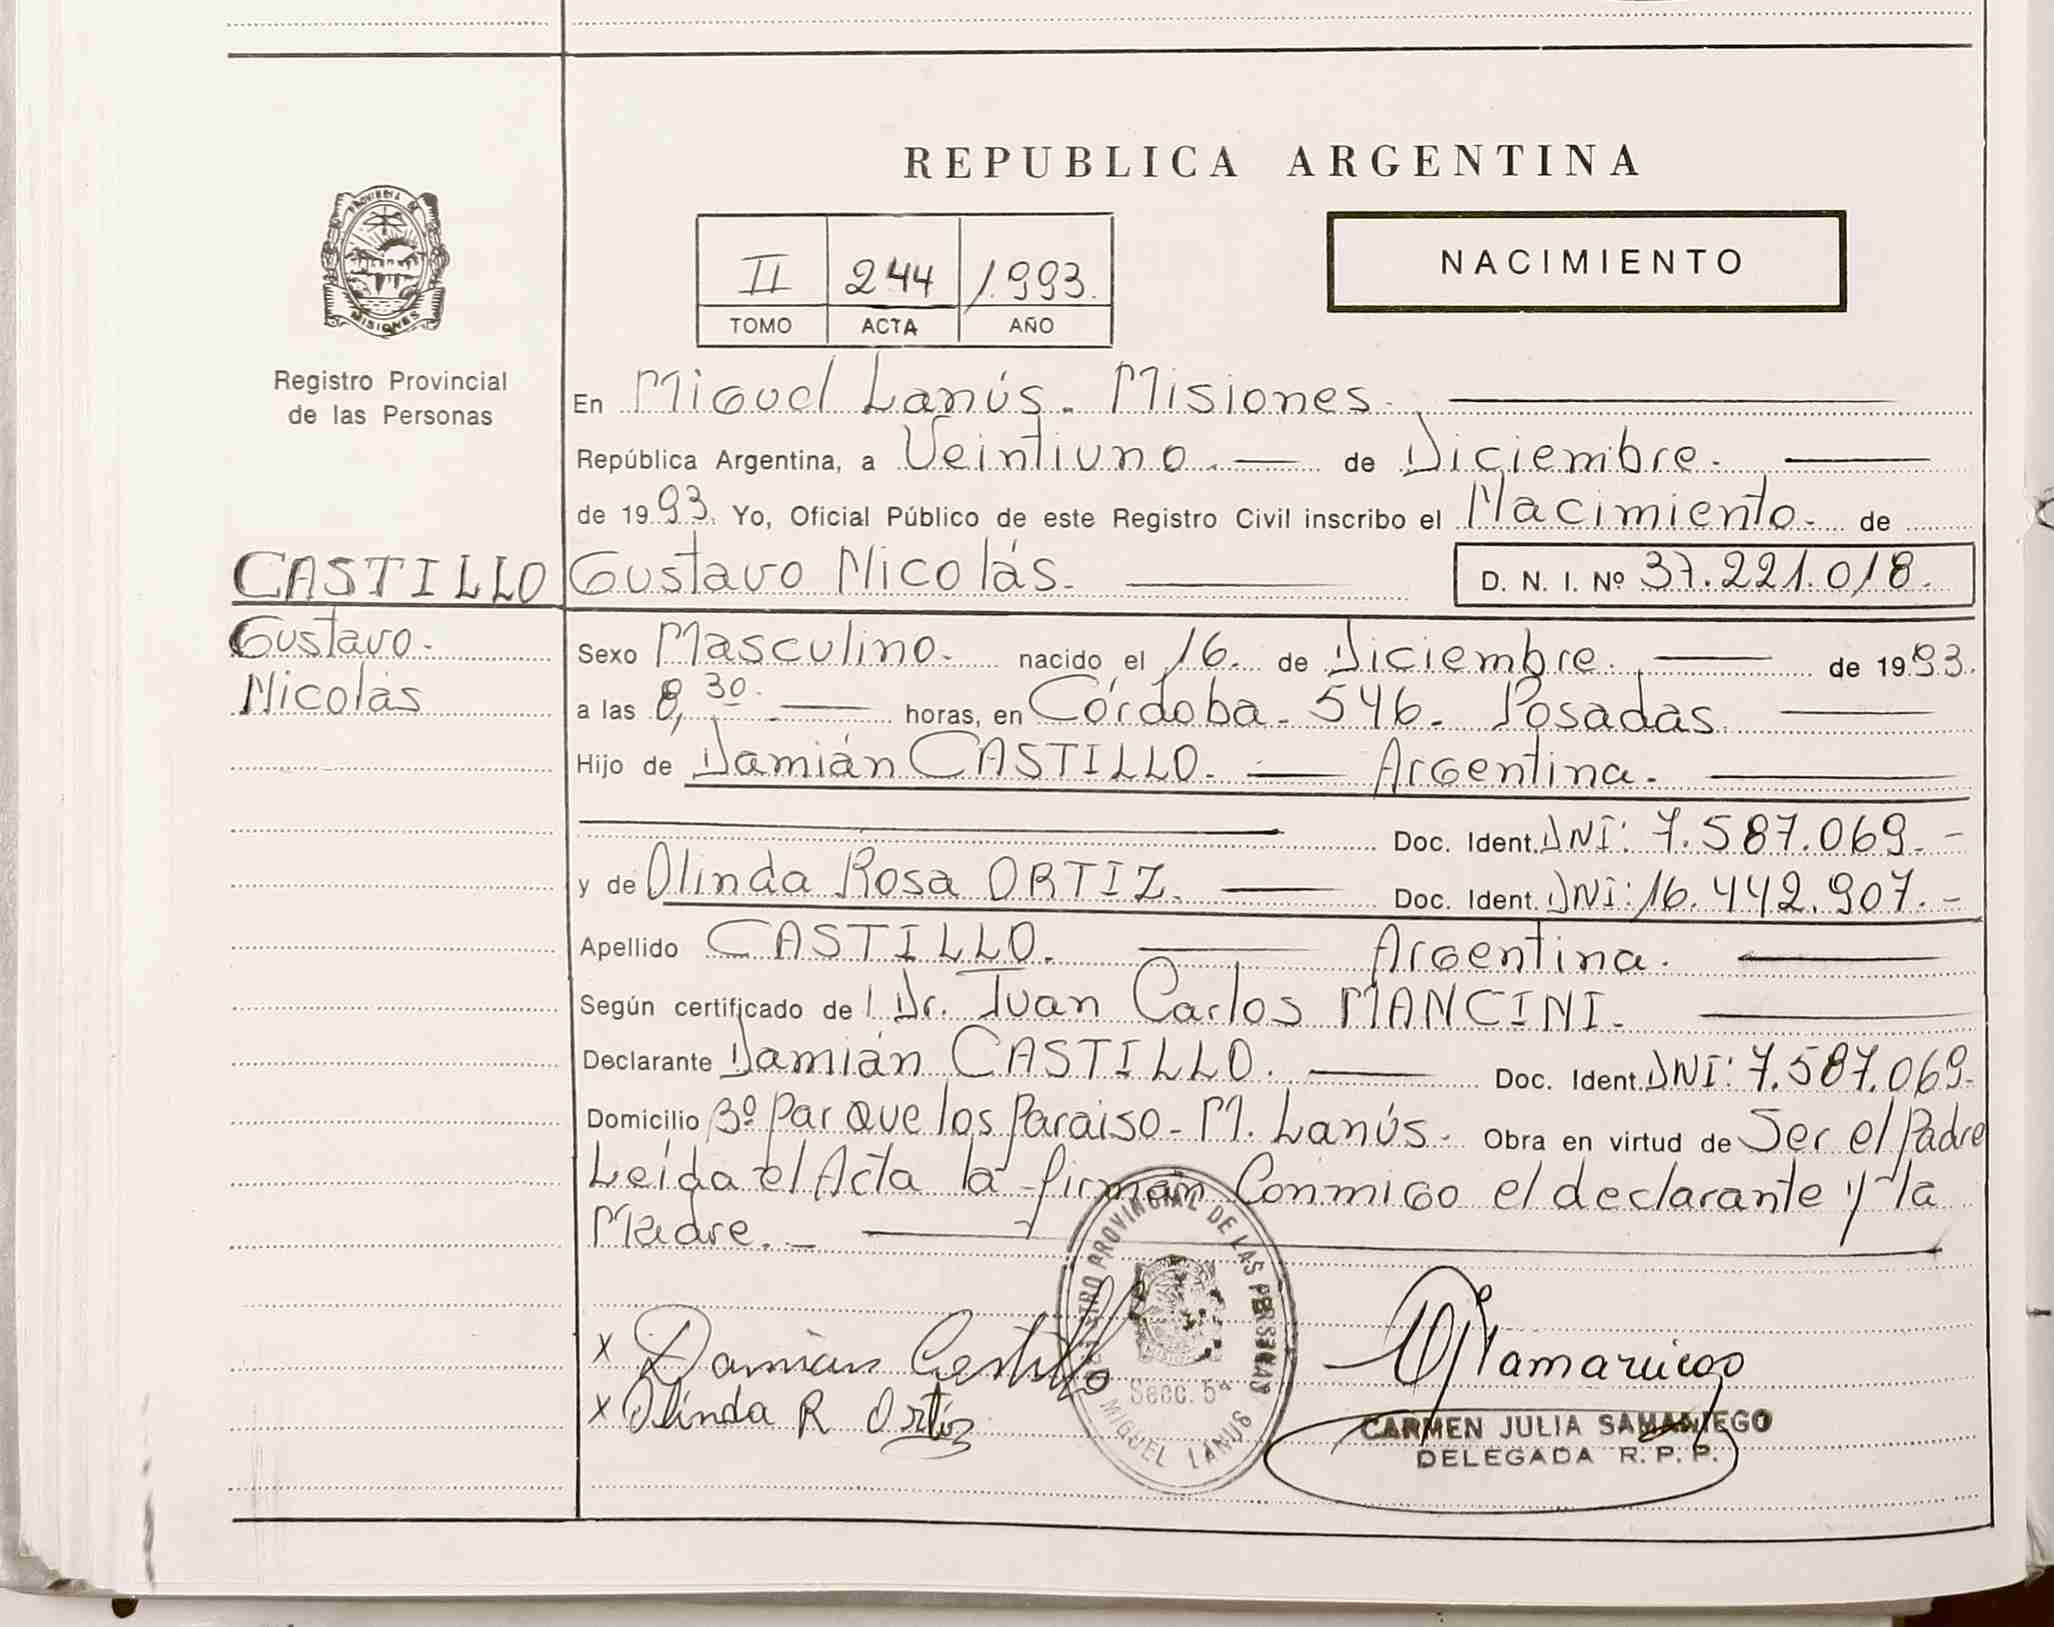 REPUBLICA ARGENTINA
PROVINCIA DE
MISIONES
Registro Provincial
de las Personas
II 244 1.993.
TOMO ACTA AÑO
NACIMIENTO
En Miguel Lanús. Misiones.
República Argentina, a Veintiuno. de Diciembre.
de 1993. Yo, Oficial Público de este Registro Civil inscribo el Nacimiento. de
CASTILLO Gustavo Nicolás. D. N. I. Nº 37.221.018.
Gustavo.
Nicolás
Sexo Masculino. nacido el 16. de Diciembre. de 1993.
a las 8,30. horas, en Córdoba. 546. Posadas.
Hijo de Damián CASTILLO. Argentina.
Doc. Ident. DNI: 7.587.069.-
y de Olinda Rosa ORTIZ. Doc. Ident. DNI: 16.442.907.-
Apellido CASTILLO. Argentina.
Según certificado de Dr. Juan Carlos MANCINI.
Declarante Damián CASTILLO. Doc. Ident. DNI: 7.587.069.
Domicilio Bº Parque los Paraiso - M. Lanús. Obra en virtud de Ser el Padre
Leída el Acta la firman Conmigo el declarante y la
Madre. -
x Damian Castillo
x Olinda R Ortiz
REGISTRO PROVINCIAL DE LAS PERSONAS
Secc. 5ª
MIGUEL LANUS
CARMEN JULIA SAMANIEGO
DELEGADA R. P. P.